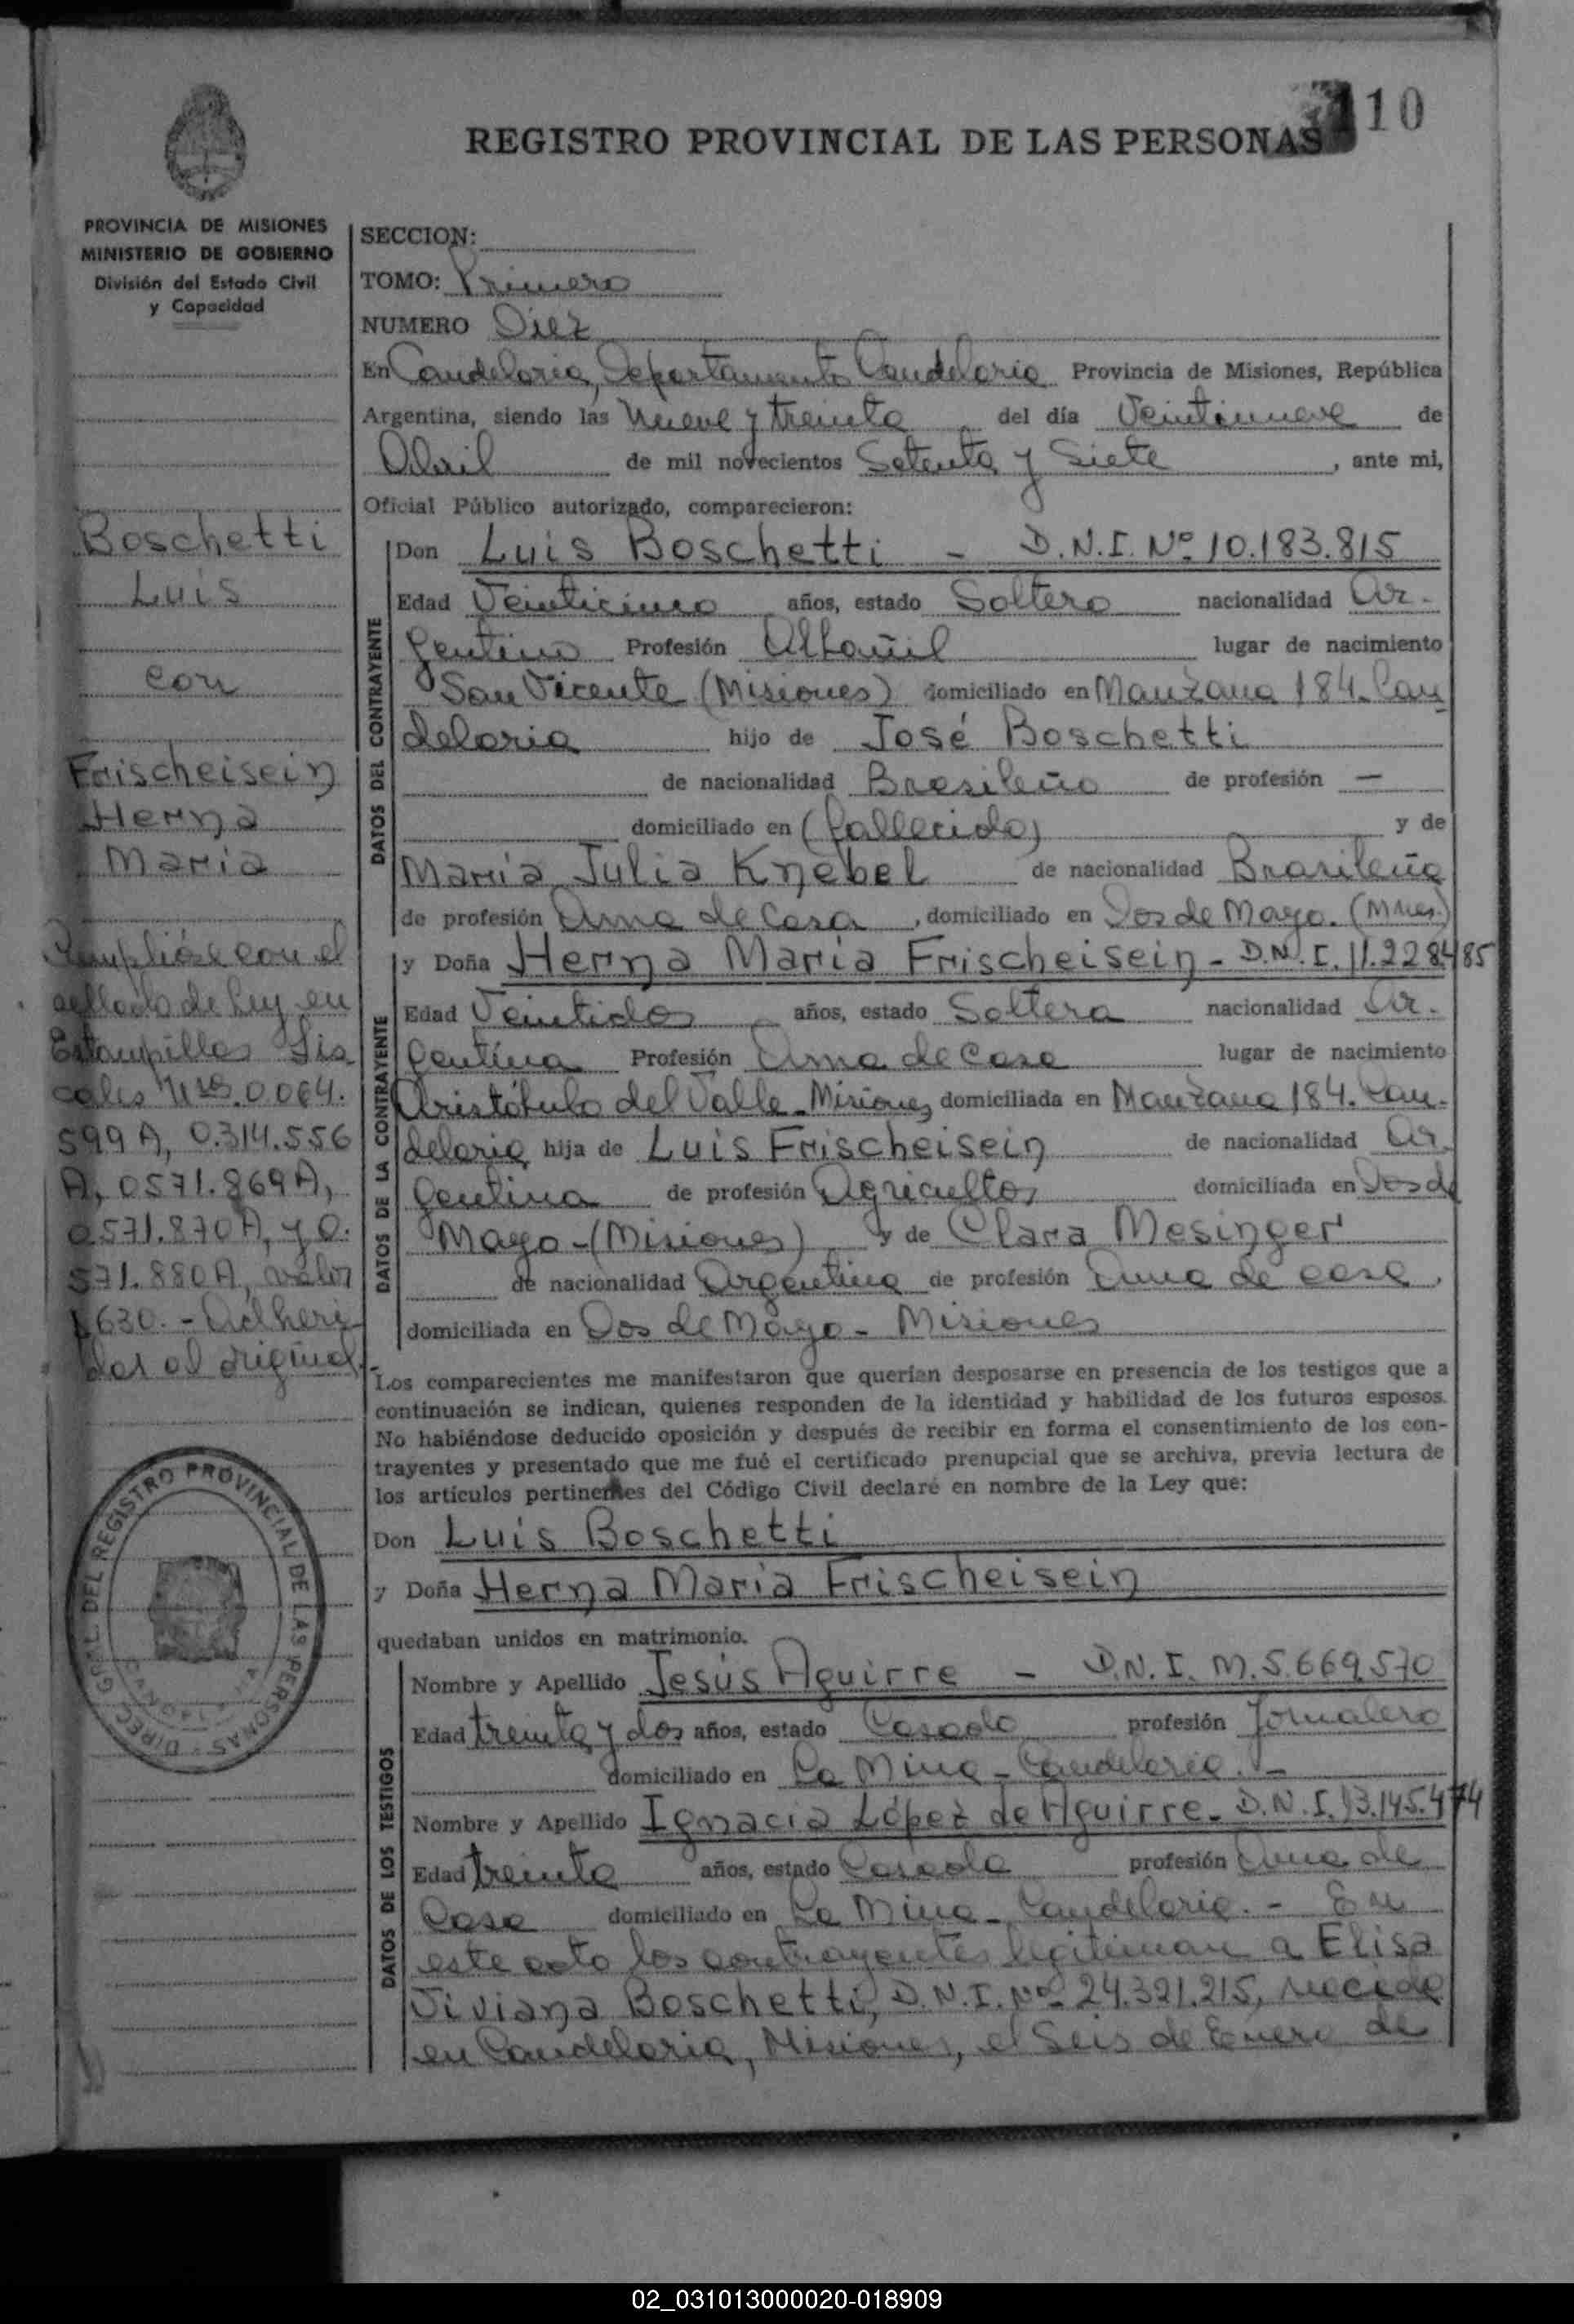 110
REGISTRO PROVINCIAL DE LAS PERSONAS
PROVINCIA DE MISIONES
MINISTERIO DE GOBIERNO
División del Estado Civil
y Capacidad
Boschetti
Luis
con
Frischeisein
Herna
María
Cumplióse con el
sellado de ley en
Estampillas Fis
cales Nros. 0.064.
599 A, 0.314.556
A, 0571.869 A,
0.571.870 A, y 0.
571.880 A, valor
$630.- Adheri
das al original.-
DIREC. GRAL. DEL REGISTRO PROVINCIAL DE LAS PERSONAS
SECCION:
TOMO: Primero
NUMERO Diez
En Candelaria, Departamento Candelaria Provincia de Misiones, República
Argentina, siendo las Nueve y treinta del día Veintinueve de
Abril de mil novecientos Setenta y Siete, ante mi,
Oficial Público autorizado, comparecieron:
DATOS DEL CONTRAYENTE
Don Luis Boschetti - D.N.I. Nº 10.183.815
Edad Veinticinco años, estado Soltero nacionalidad Ar-
gentino Profesión Albañil lugar de nacimiento
San Vicente (Misiones) domiciliado en Manzana 184. Can
delaria hijo de José Boschetti
de nacionalidad Brasileño de profesión —
domiciliado en (fallecido) y de
María Julia Knebel de nacionalidad Brasileña
de profesión Ama de Casa, domiciliado en Dos de Mayo. (Mnes.)
DATOS DE LA CONTRAYENTE
y Doña Herna María Frischeisein - D.N.I. 11.228.485
Edad Veintidos años, estado Soltera nacionalidad Ar-
gentina Profesión Ama de Casa lugar de nacimiento
Aristóbulo del Valle - Misiones domiciliada en Manzana 184. Can-
delaria hija de Luis Frischeisein de nacionalidad Ar-
gentina de profesión Agricultor domiciliada en Dos de
Mayo - (Misiones) y de Clara Mesinger
de nacionalidad Argentina de profesión Ama de casa,
domiciliada en Dos de Mayo - Misiones
Los comparecientes me manifestaron que querían desposarse en presencia de los testigos que a
continuación se indican, quienes responden de la identidad y habilidad de los futuros esposos.
No habiéndose deducido oposición y después de recibir en forma el consentimiento de los con-
trayentes y presentado que me fué el certificado prenupcial que se archiva, previa lectura de
los artículos pertinentes del Código Civil declaré en nombre de la Ley que:
Don Luis Boschetti
y Doña Herna María Frischeisein
quedaban unidos en matrimonio.
DATOS DE LOS TESTIGOS
Nombre y Apellido Jesús Aguirre - D.N.I. M. 5.669.570
Edad treinta y dos años, estado Casado profesión Jornalero
domiciliado en La Mina - Candelaria. -
Nombre y Apellido Ignacia López de Aguirre - D.N.I. 13.145.474
Edad treinta años, estado Casada profesión Ama de
Casa domiciliado en La Mina - Candelaria. - En
este acto los contrayentes legitiman a Elisa
Viviana Boschetti, D.N.I. Nº 24.321.215, nacida
en Candelaria, Misiones, el Seis de Enero de
02_031013000020-018909